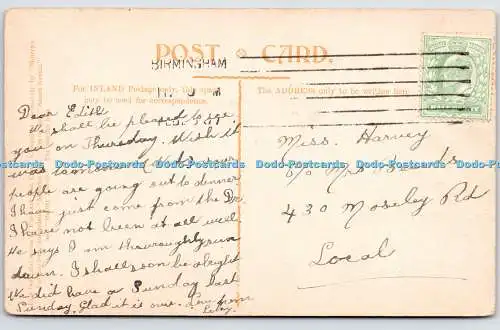 POST CARD.
BIRMINGHAM
For INLAND Postage only, this space
may be used for correspondence.
The ADDRESS only to be written here.
Dear Edith
We shall be pleased to see
you on Thursday. Wish it
was
people are going out to dinner
I have just come from the Dr.
I have not been at all well
He says I am thouroughly run
down. I shall soon be alright
We did have a Sunday last
Sunday. Glad it is over. Love from
Miss. Harvey
c/o Mrs
430 Moseley Rd
Local
Dodo-Postcards Dodo-Postcards Dodo-Postcards Dodo-Postcards Dodo-Postcards Dodo-Postcards